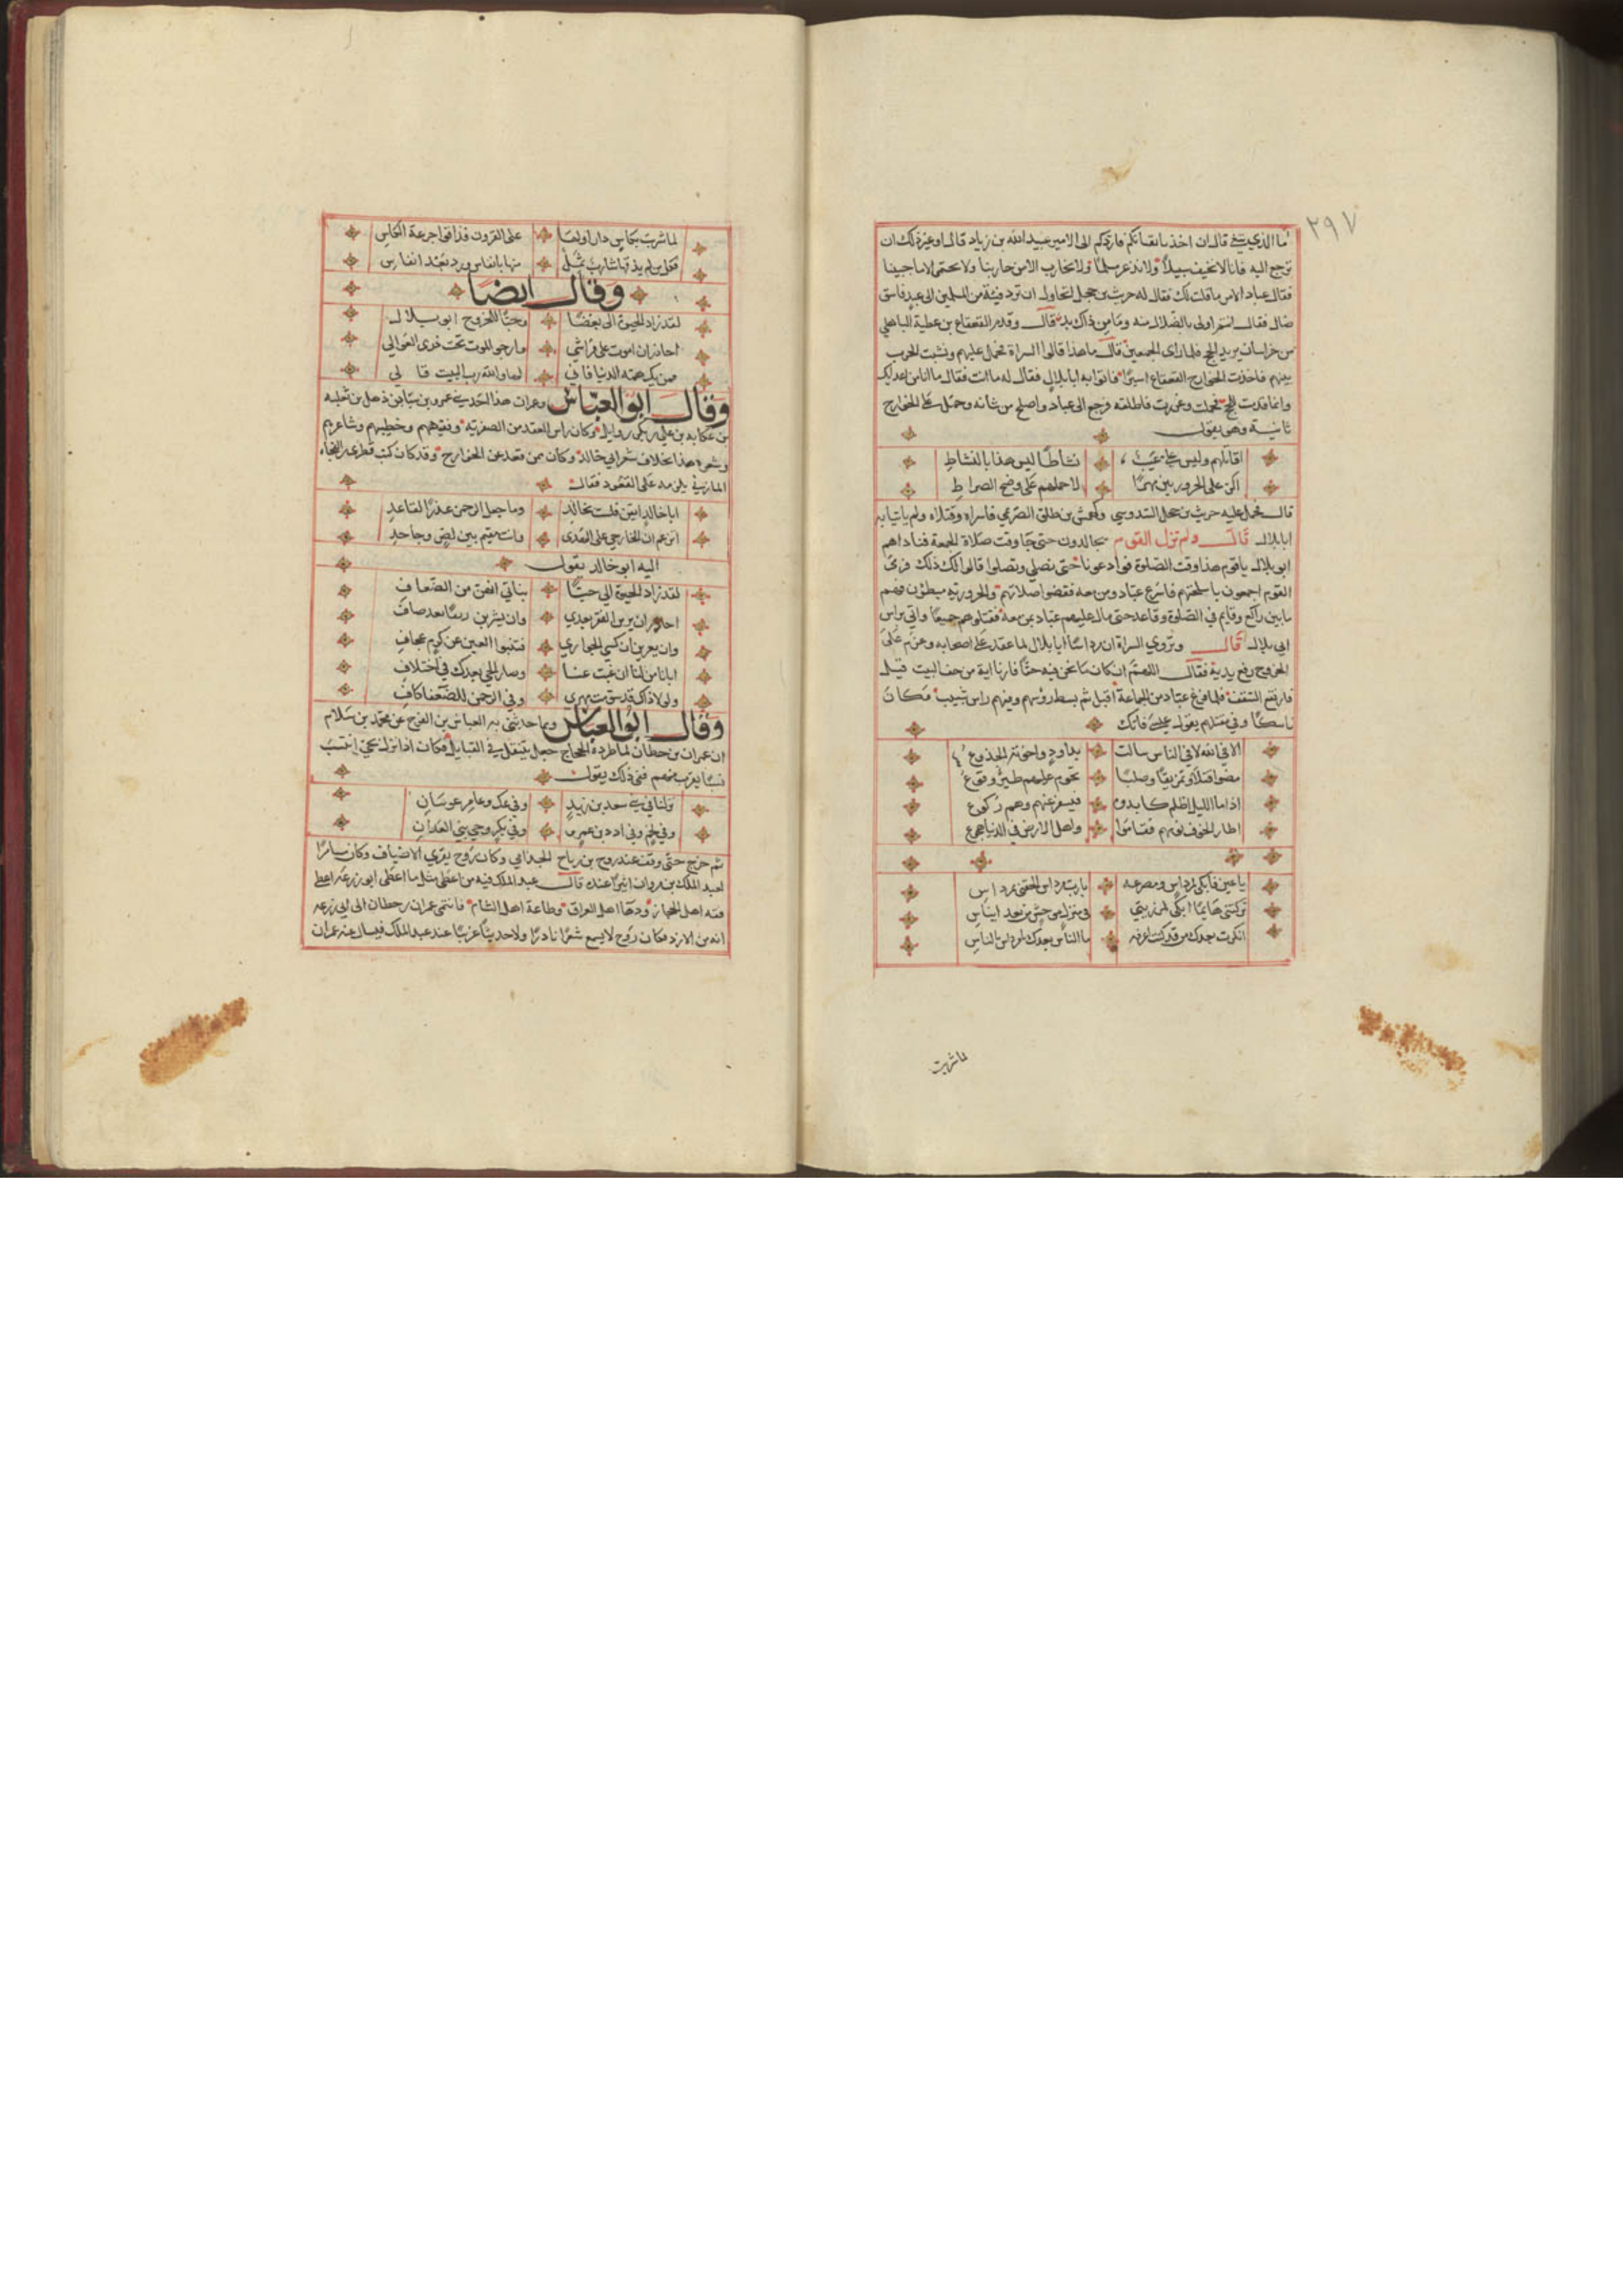 ٢٩٧
ما الذي تبتغي قال ان اخذ باقفائكم فاردكم الى الامير عبيد الله بن زياد قال او غير ذلك ان
نرجع اليه فانا لا نخيف سبيلا ولا نذعر مسلما ولا نحارب الا من حاربنا ولا نحتمي الا ما جبينا
فقال عباد الامر ما قلت لك فقال له حريث بن حجل اتحاول ان ترد فئة من المسلمين الى عبد فاسق
ضال فقال انتم اولى بالضلال منه وما من ذاك بد قال وقدم القعقاع بن عطية الباهلي
من خراسان يريد الحج فلما راى الجمعين قال ما هذا قالوا الشراة فحمل عليهم ونشبت الحرب
بينهم فاخذت الخوارج القعقاع اسيرا فاتوا به ابا بلال فقال له ما انت فقال ما انا من اعدائك
وانما قدمت للحج فجهلت وغررت فاطلقه فرجع الى عباد واصلح من شأنه وحمل على الخوارج
ثانية وهو يقول
اقاتلهم وليس علي بعث نشاطا ليس هذا بالنشاط
اكر على الحروريين مهري لاحملهم على وضح الصراط
قال فحمل عليه حريث بن حجل السدوسي وكهمس بن طلق الصريمي فاسراه وقتلاه ولم ياتيا به
ابا بلال قال ولم تزل القوم يجالدون حتى جا وقت صلاة الجمعة فناداهم
ابو بلال يا قوم هذا وقت الصلوة فوادعونا حتى نصلي وتصلوا قالوا لك ذلك فرمى
القوم اجمعون باسلحتهم فاسرع عباد ومن معه فقضوا صلاتهم والحرورية مبطؤن فهم
ما بين راكع وقايم في الصلوة وقاعد حتى مال عليهم عباد بمن معه فقتلوهم جميعا واتي براس
ابي بلال قال وتروي الشراة ان مرداسا ابا بلال لما عقد على اصحابه وعزم على
الخروج رفع يديه فقال اللهم ان كان ما نحن فيه حقا فارنا اية من حف البيت قيل
فارتفع السقف فلما فرغ عباد من الجماعة اقبل ثم بسط رؤسهم وفيهم راس شبيب فكان
ناسكا وفي مقتلهم يقول
الا في الله لا في الناس سالت بداود واخوته الجذوع
مضوا قتلا وتمزيقا وصلبا تحوم عليهم طير وقوع
اذا ما الليل اظلم كابدوه فيسفر عنهم وهم ركوع
اطار الخوف نومهم فقاموا واهل الارض في الدنيا هجوع
يا عين فابكي لمرداس ومصرعه يا رب مرداس الحقني بمرداس
تركتني هايما ابكي لمرزيتي في منزل موحش من بعد ايناس
انكرت بعدك من قد كنت اعرفه ما الناس بعدك يا مرداس بالناس
لما شربت
لما شربت بكاس دار اولها على القرون فذاقوا جرعة الكاس
فكل من لم يذقها شارب عجل منها بانفاس ورد بعد انفاس
وقال ايضا
لقد زاد الحيوة الى بغضا وحبا للخروج ابو بلال
احاذر ان اموت على فراشي وارجو الموت تحت ذرى العوالي
فمن يك همه الدنيا فاني لها والله رب البيت قا لي
وقال ابو العباس وعمران هذا احد بني عمرو بن شيبان بن ذهل بن ثعلبه
بن عكابه بن علي بن بكر بن وايل وكان راس القعد من الصفرية وفقيههم وخطيبهم وشاعرهم
وشعره هذا بخلاف شعر ابي خالد وكان ممن قعد عن الخوارج وقد كان كتب قطري بن الفجاءة
المازني يلومه على القعود فقال
ابا خالد ايقن فلست بخالد وما جعل الرحمن عذرا لقاعد
اتزعم ان الخارجي على الهدى وانت مقيم بين لص وجاحد
اليه ابو خالد يقول
لقد زاد الحيوة الي حبا بناتي انهن من الضعاف
احاذر ان يرين الفقر بعدي وان يشربن رنقا بعد صاف
وان يعرين ان كسي الجواري فتنبوا العين عن كرم عجاف
ابانا من لنا ان غبت عنا وصار الحي بعدك في اختلاف
ولولا ذاك قد سومت مهري وفي الرحمن للضعفا كاف
وقال ابو العباس ومما حدثني به العباس بن الفرج عن محمد بن سلام
ان عمران بن حطان لما طرده الحجاج جعل يتنقل في القبايل فكان اذا نزل بحي انتسب
نسبا يقرب منهم ففي ذلك يقول
نزلنا في بني سعد بن زيد وفي عك وعامر عوبثان
وفي لخم وفي ادد بن عمرو وفي بكر وحي بني العدان
ثم خرج حتى وقف عند روح بن زنباع الجذامي وكان روح يقري الاضياف وكان سامرا
لعبد الملك بن مروان اثيرا عنده قال عبد الملك فيه من اعطي مثل ما اعطى ابو زرعه اعطى
فقه اهل الحجاز ودها اهل العراق وطاعة اهل الشام فانتمى عمران بن حطان الى ابي زرعه
انه من الازد فكان روح لا يسمع شعرا نادرا ولا حديثا غريبا عند عبد الملك فيسال عنه عمران